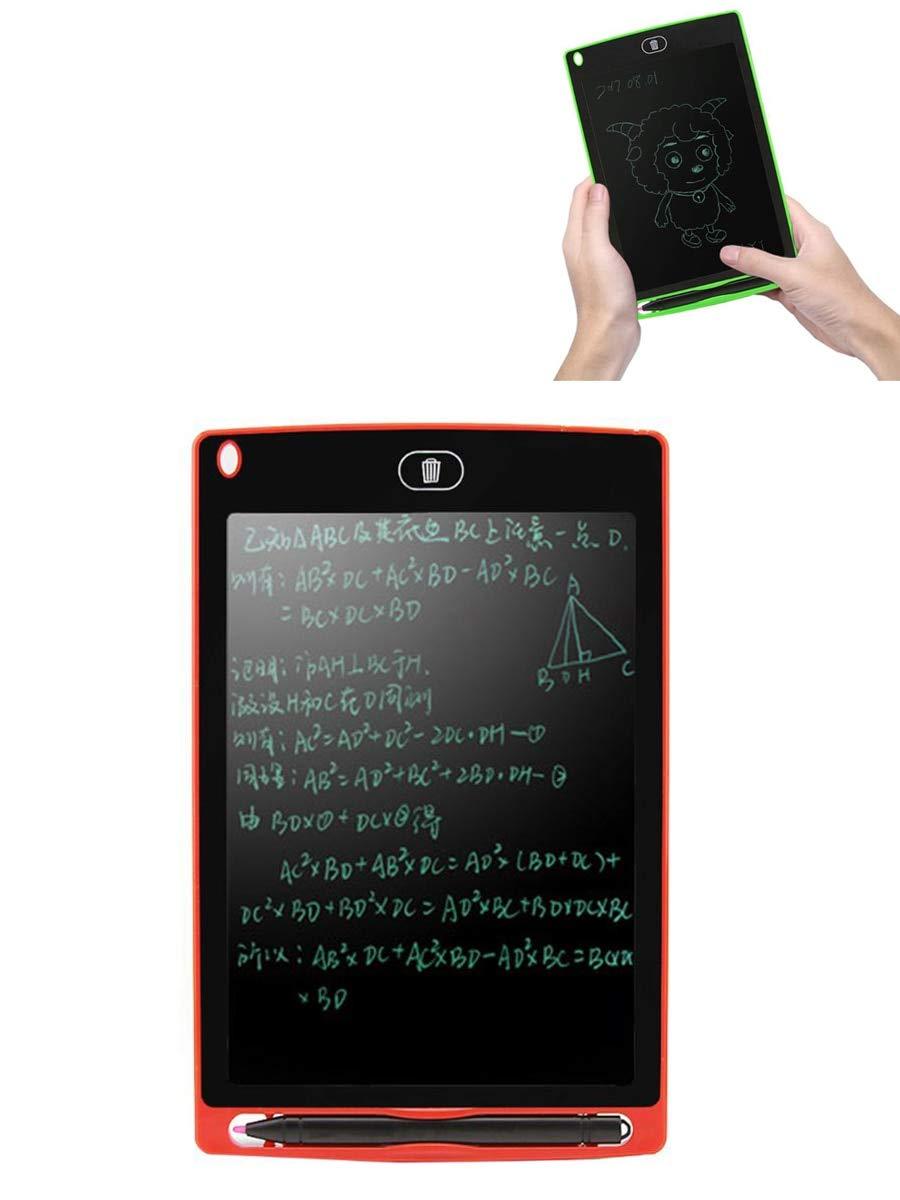 2017.08.01
已知△ABC及其底边BC上任意一点D.
则有: AB²×DC+AC²×BD-AD²×BC
=BC×DC×BD
A
B D H C
证明: 作AH⊥BC于H.
假设H和C在D同侧
则有: AC²=AD²+DC²-2DC·DH—①
同理: AB²=AD²+BC²+2BD·DH—②
由BD×①+DC×②得
AC²×BD+AB²×DC=AD²×(BD+DC)+
DC²×BD+BD²×DC=AD²×BC+BD×DC×BC
所以: AB²×DC+AC²×BD-AD²×BC=BC×DC
×BD